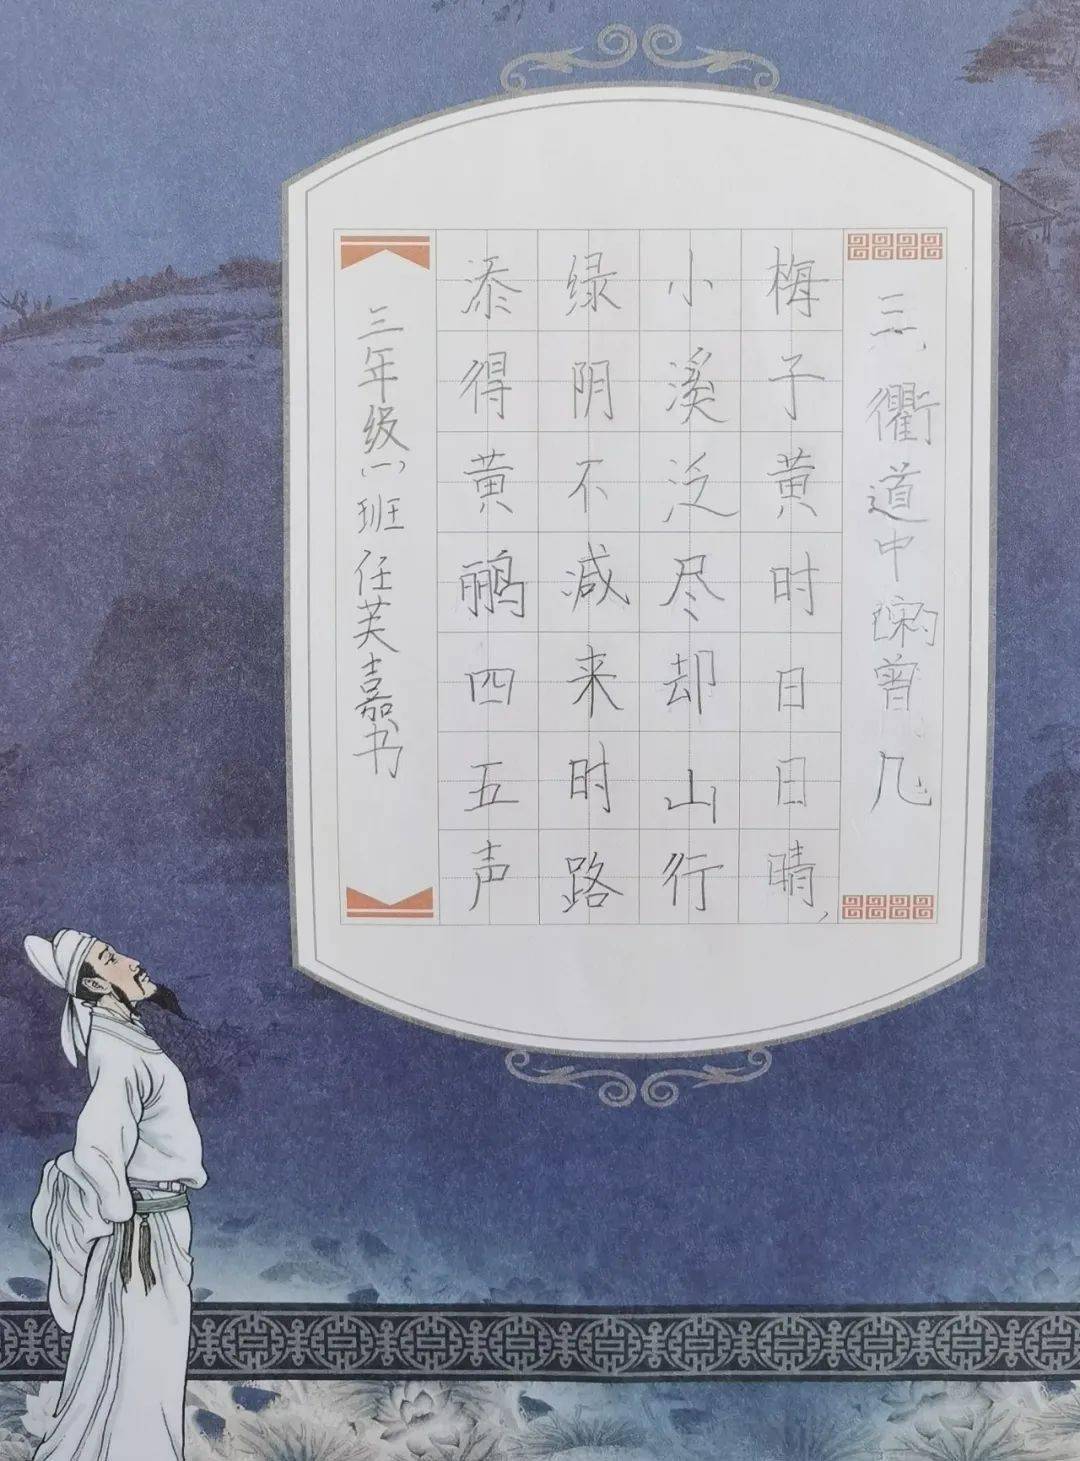 三衢道中 [宋]曾几
梅子黄时日日晴，
小溪泛尽却山行
绿阴不减来时路
添得黄鹂四五声
三年级(一)班任芙嘉书